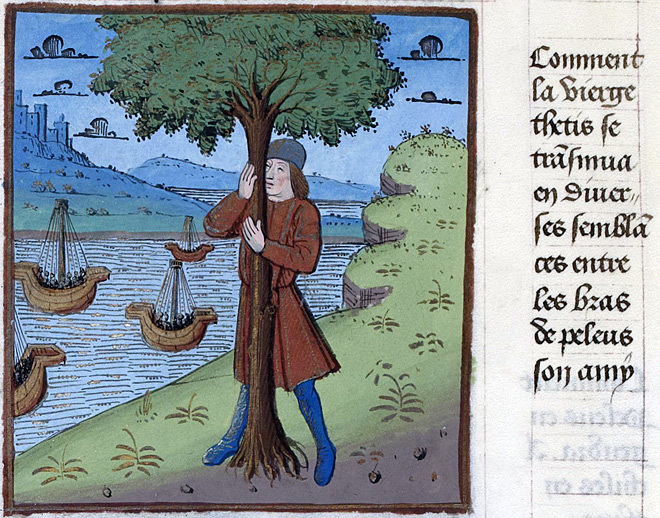 Comment
la vierge
thetis se
trãsmua
en diuer-
ses semblã
ces entre
les bras
de peleus
son amy